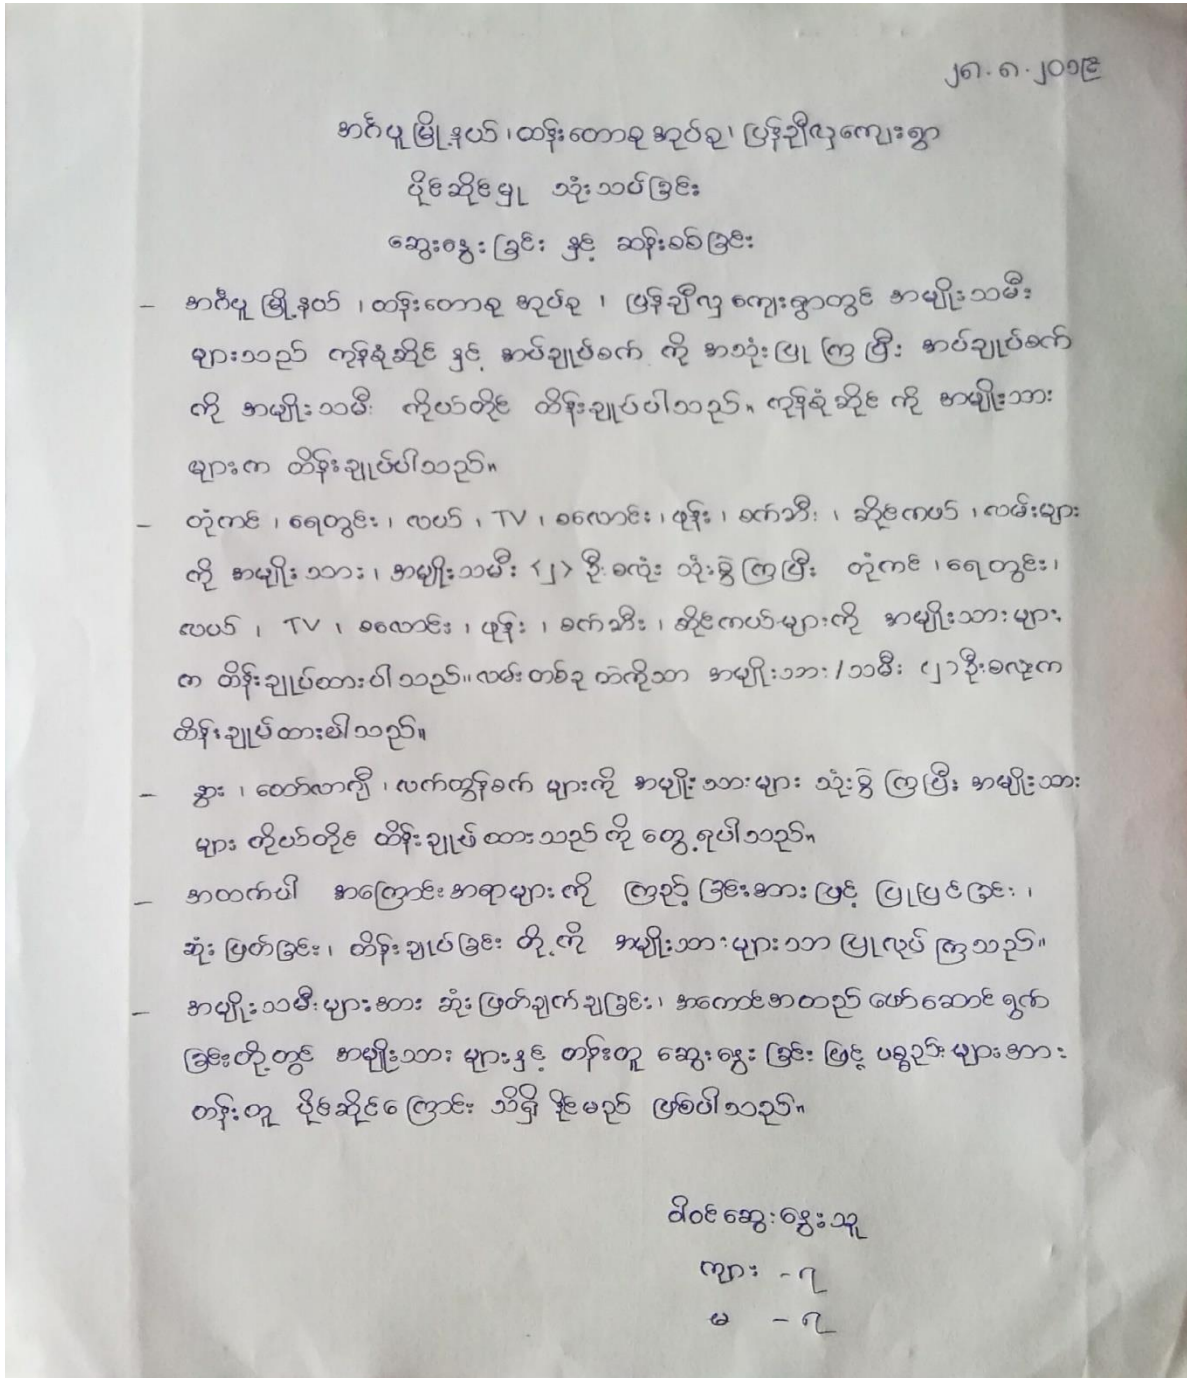 ၂၈.၈.၂၀၁၉
အင်္ဂပူမြို့နယ်၊ထန်းတောစုအုပ်စု၊ပြန်ချီလှကျေးရွာ
ပိုင်ဆိုင်မှု သုံးသပ်ခြင်း
ဆွေးနွေးခြင်း နှင့် ဆန်းစစ်ခြင်း
- အင်္ဂပူမြို့နယ်၊ထန်းတောစုအုပ်စု၊ ပြန်ချီလှကျေးရွာတွင် အမျိုးသမီး
များသည် ကုန်စုံဆိုင် နှင့် အပ်ချုပ်စက် ကို အသုံးပြုကြပြီး အပ်ချုပ်စက်
ကို အမျိုးသမီး ကိုယ်တိုင် ထိန်းချုပ်ပါသည်။ ကုန်စုံဆိုင် ကို အမျိုးသား
များက ထိန်းချုပ်ပါသည်။
- တုံကင်၊ရေတွင်း၊လယ်၊TV၊စလောင်း၊ဖုန်း၊စက်ဘီး၊ဆိုင်ကယ်၊လမ်းများ
ကို အမျိုးသား၊အမျိုးသမီး <၂> ဦးစလုံး သုံးစွဲကြပြီး တုံကင်၊ရေတွင်း၊
လယ်၊TV၊စလောင်း၊ဖုန်း၊စက်ဘီး၊ဆိုင်ကယ်များကို အမျိုးသားများ
က ထိန်းချုပ်ထားပါသည်။လမ်းတစ်ခုထဲကိုသာ အမျိုးသား/သမီး (၂)ဦးစလုံးက
ထိန်းချုပ်ထားပါသည်။
- နွား၊ထော်လာဂျီ၊လက်တွန်စက် များကို အမျိုးသားများ သုံးစွဲကြပြီး အမျိုးသား
များ ကိုယ်တိုင် ထိန်းချုပ်ထားသည်ကို တွေ့ရပါသည်။
- အထက်ပါ အကြောင်းအရာများကို ကြည့်ခြင်းအားဖြင့် ပြုပြင်ခြင်း၊
ဆုံးဖြတ်ခြင်း၊ထိန်းချုပ်ခြင်းတို့ကို အမျိုးသားများသာ ပြုလုပ်ကြသည်။
- အမျိုးသမီးများအား ဆုံးဖြတ်ချက်ချခြင်း၊အကောင်အထည်ဖော်ဆောင်ရွက်
ခြင်းတို့တွင် အမျိုးသားများနှင့် တန်းတူ ဆွေးနွေးခြင်းဖြင့် ပစ္စည်းများအား
တန်းတူ ပိုင်ဆိုင်ကြောင်း သိရှိနိုင်မည် ဖြစ်ပါသည်။
ပါဝင်ဆွေးနွေးသူ
ကျား -၇
မ -၇